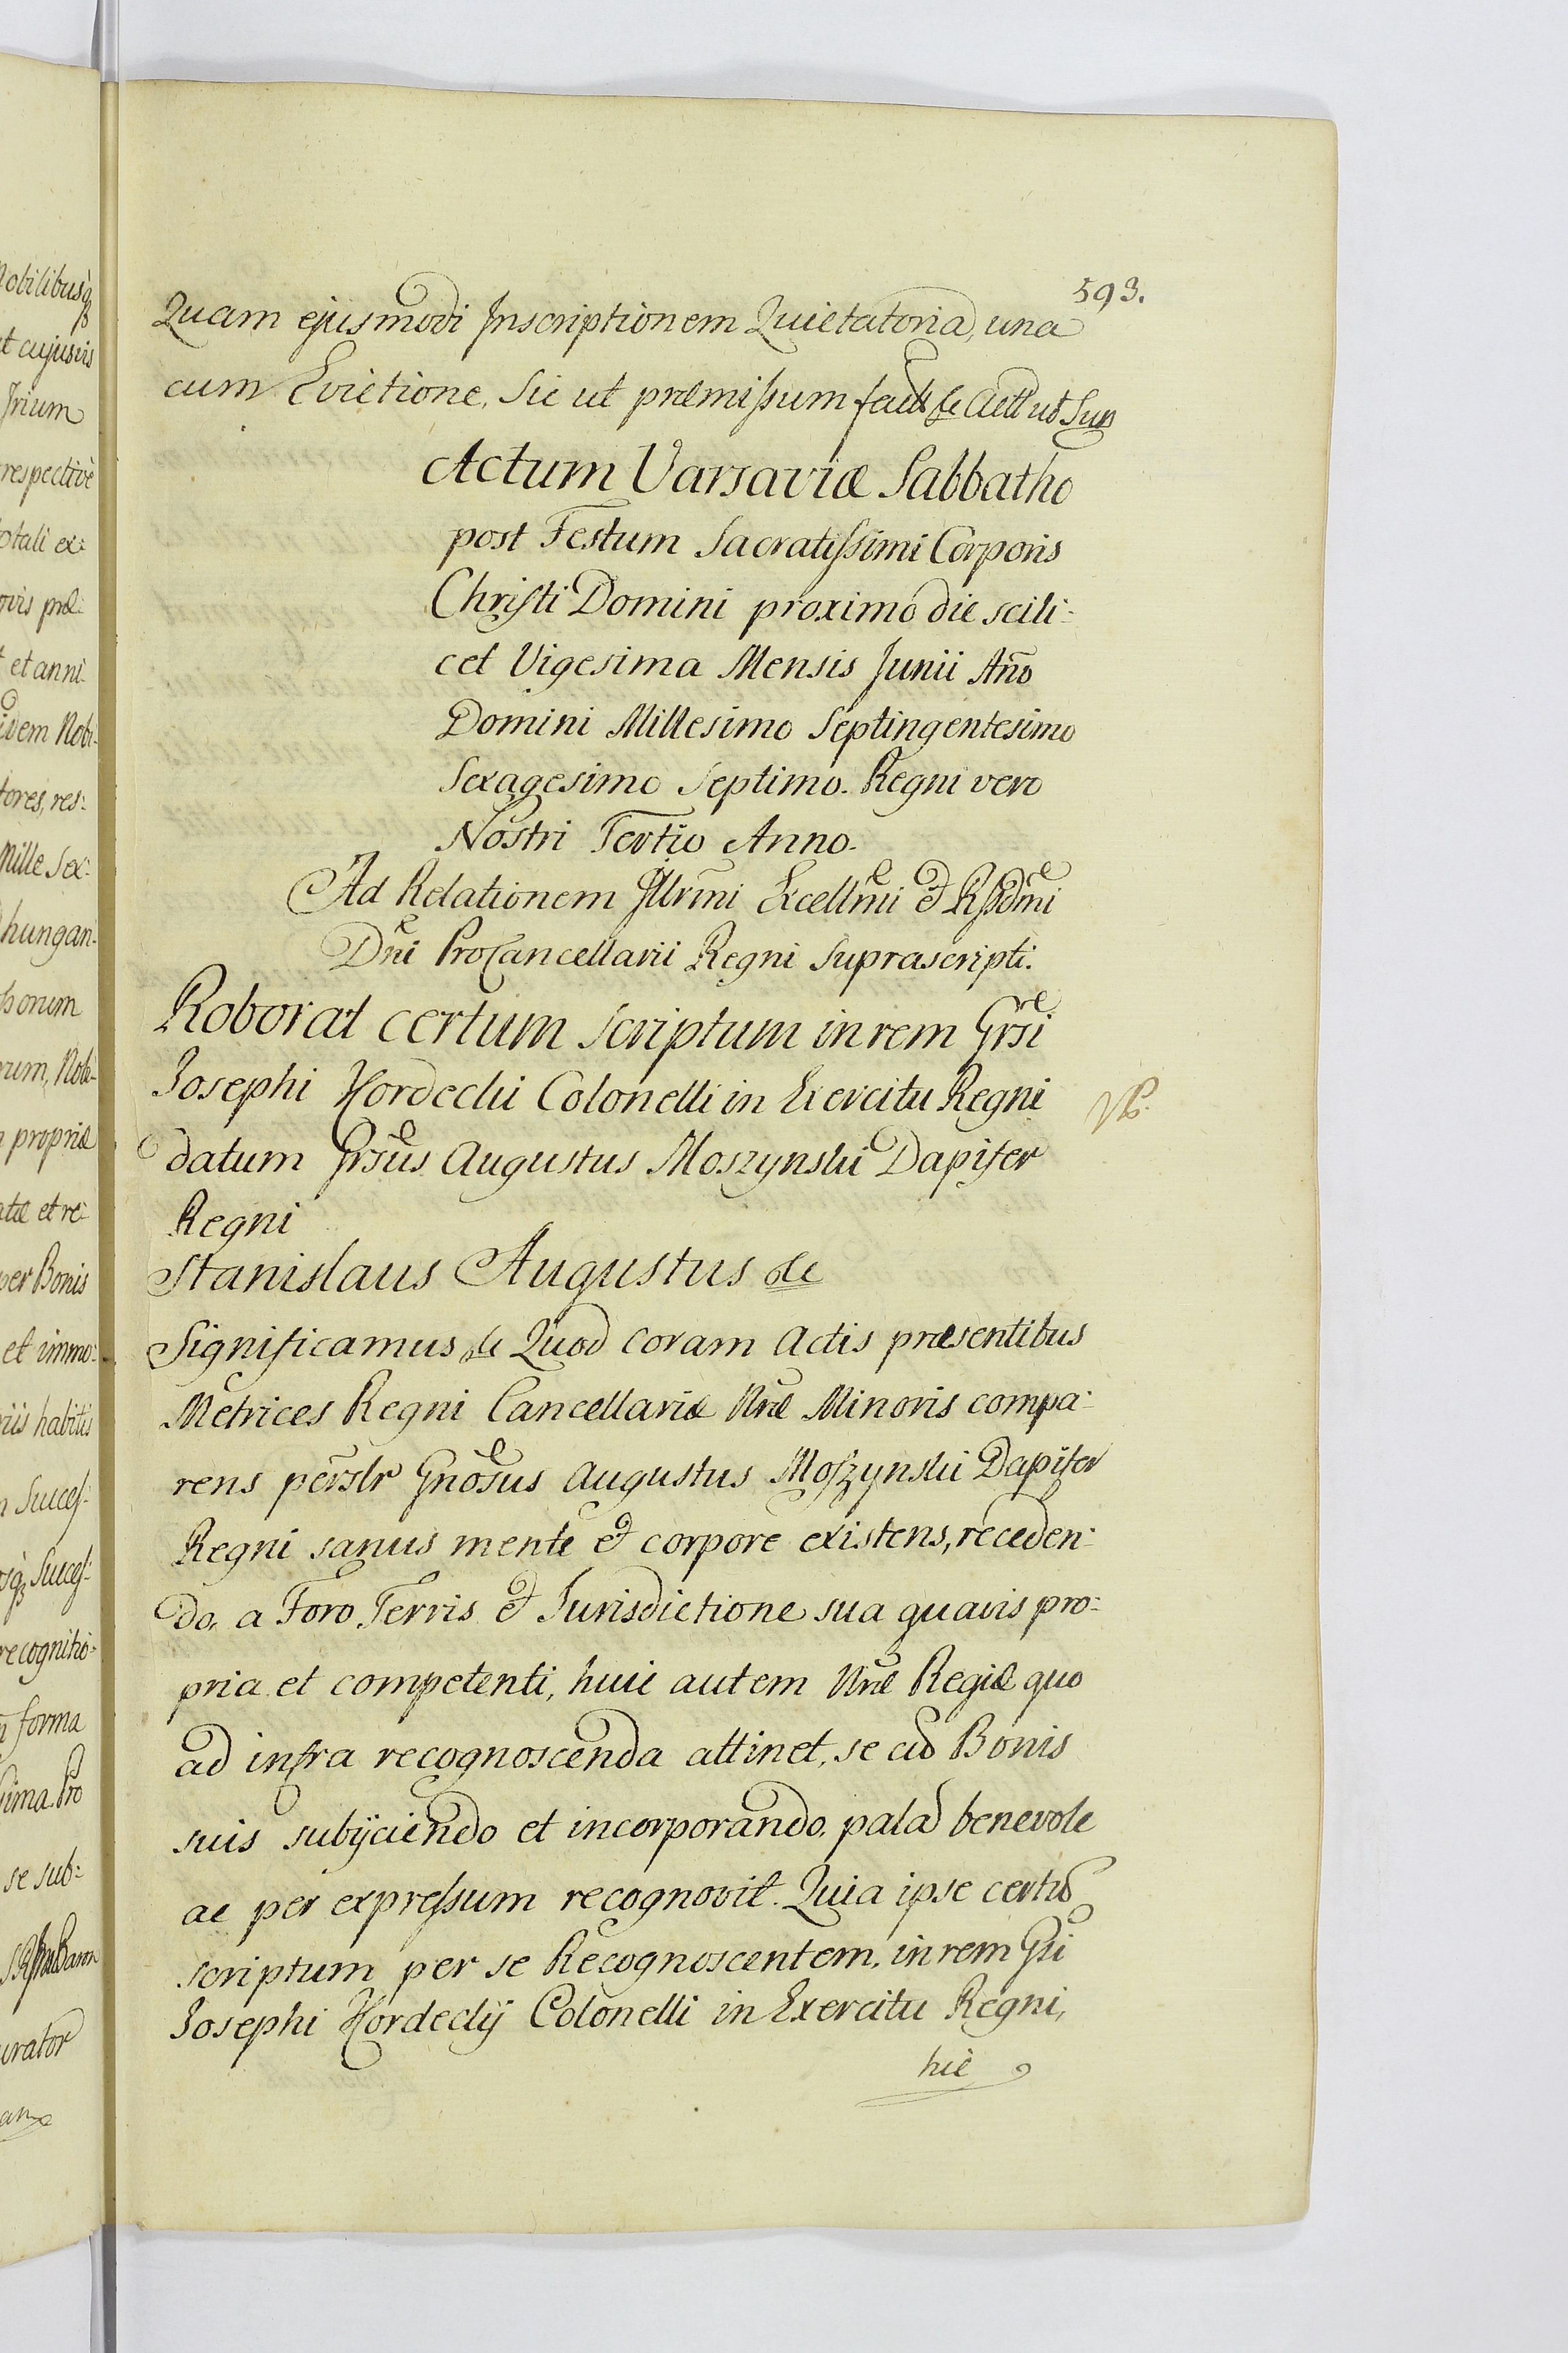 593.
Quam ejusmodi Inscriptionem Quietatoria, una
cum Evictione, Sic ut præmissum ut Sup
Actum Varsaviæ Sabbatho
post Festum Sacratissimi Corporis
Christi Domini proximo die scili:
cet Vigesima Mensis Junii Año
Domini Millesimo Septingentesimo
Sexagesimo Septimo. Regni vero
Nostri Tertio Anno.
Ad Relationem Illrmi Excellmi et Rssdmi
Dni ProCancellarii Regni Suprascripti.
Roborat certum Scriptum in rem Grsi
Josephi Hordechi Colonelli in Exercitu Regni
datum Grsus Augustus Moszynski Dapifer
Regni
Stanislaus Augustus &c
Significamus &c Quod coram Actis præsentibus
Metrices Regni Cancellariæ Nræ Minoris compa:
rens perslr Gnosus Augustus Moszynski Dapifer
Regni sanus mente et corpore existens, receden:
do, a Foro Terris et Jurisdictione sua quavis pro:
pria et competenti, huic autem Nræ Regiæ quo
ad infra recognoscenda attinet, se cum Bonis
suis subijciendo et incorporando, palam benevole
ac per expressum recognovit. Quia ipse certum
scriptum per se Recognoscentem, in rem Gsi
Josephi Hordeclij Colonelli in Exercitu Regni,
hic
nobilibusq
et cujusvis
respective
totali ex:
ovis præ:
et anni
idem Nobi:
tores, res:
Mille Sex:
hungari:
rum, Nobi:
propriæ
atæ et re:
per Bonis
et immo:
riis habitis
Succes:
Succes:
recognitio:
forma
sima. Pro
se sub:
urator